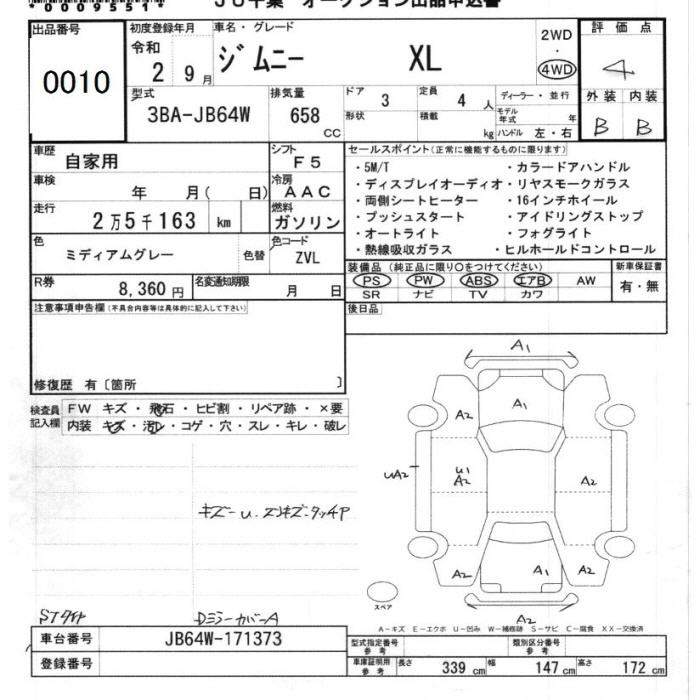 *00009551*
JU千葉 オークション出品申込書
出品番号 初度登録年月 車名・グレード 評価点
0010 令和 2 9月 ジムニー XL 2WD ・ 4WD 4
型式 排気量 ドア 3 定員 4 人 ディーラー・並行 外装 内装
3BA-JB64W 658 cc 形状 積載 kg モデル年式 年 ハンドル 左・右 B B
車歴 自家用 シフト F5 セールスポイント(正常に機能するものに限ります)
車検 年 月( 日) 冷房 AAC
走行 2万5千163 km 燃料 ガソリン
・5M/T ・カラードアハンドル
・ディスプレイオーディオ ・リヤスモークガラス
・両側シートヒーター ・16インチホイール
・プッシュスタート ・アイドリングストップ
・オートライト ・フォグライト
・熱線吸収ガラス ・ヒルホールドコントロール
色 ミディアムグレー 色替 色コード ZVL
装備品(純正品に限り○をつけてください) 新車保証書
R券 8,360円 名変通知期限 月 日
PS PW ABS エアB AW 有・無
SR ナビ TV カワ
注意事項申告欄(不具合内容等は具体的に記入して下さい) 後日品
修復歴 有〔箇所 〕
検査員記入欄 FW キズ・飛石・ヒビ割・リペア跡・×要
内装 キズ・汚れ・コゲ・穴・スレ・キレ・破レ
A1
A2 A1
UA2 U1 A2 A2
A2 A1 A2
A2
スペア
STタイヤ DミラーカバーA
A－キズ E－エクボ U－凹み W－補修跡 S－サビ C－腐食 XX－交換済
車台番号 JB64W-171373 型式指定番号 参考 類別区分番号 参考
登録番号 車庫証明用 参考 長さ 339 cm 幅 147 cm 高さ 172 cm